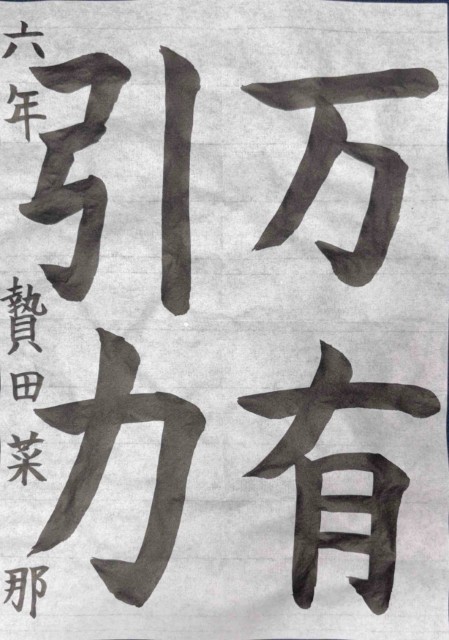 万有
引力
六年 贄田菜那